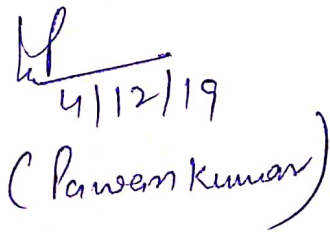 4/12/19
(Pawan Kumar)